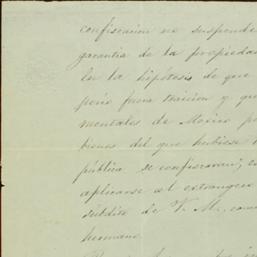 confiscacion no suspende
garantia de la propiedad
En la hipótesis de que
fuera traicion y que
mentales de Mexico
bienes del que hubiese
pública se confiscaran; es
aplicarse al extrangero
súbdito de V. M., como
hermano.